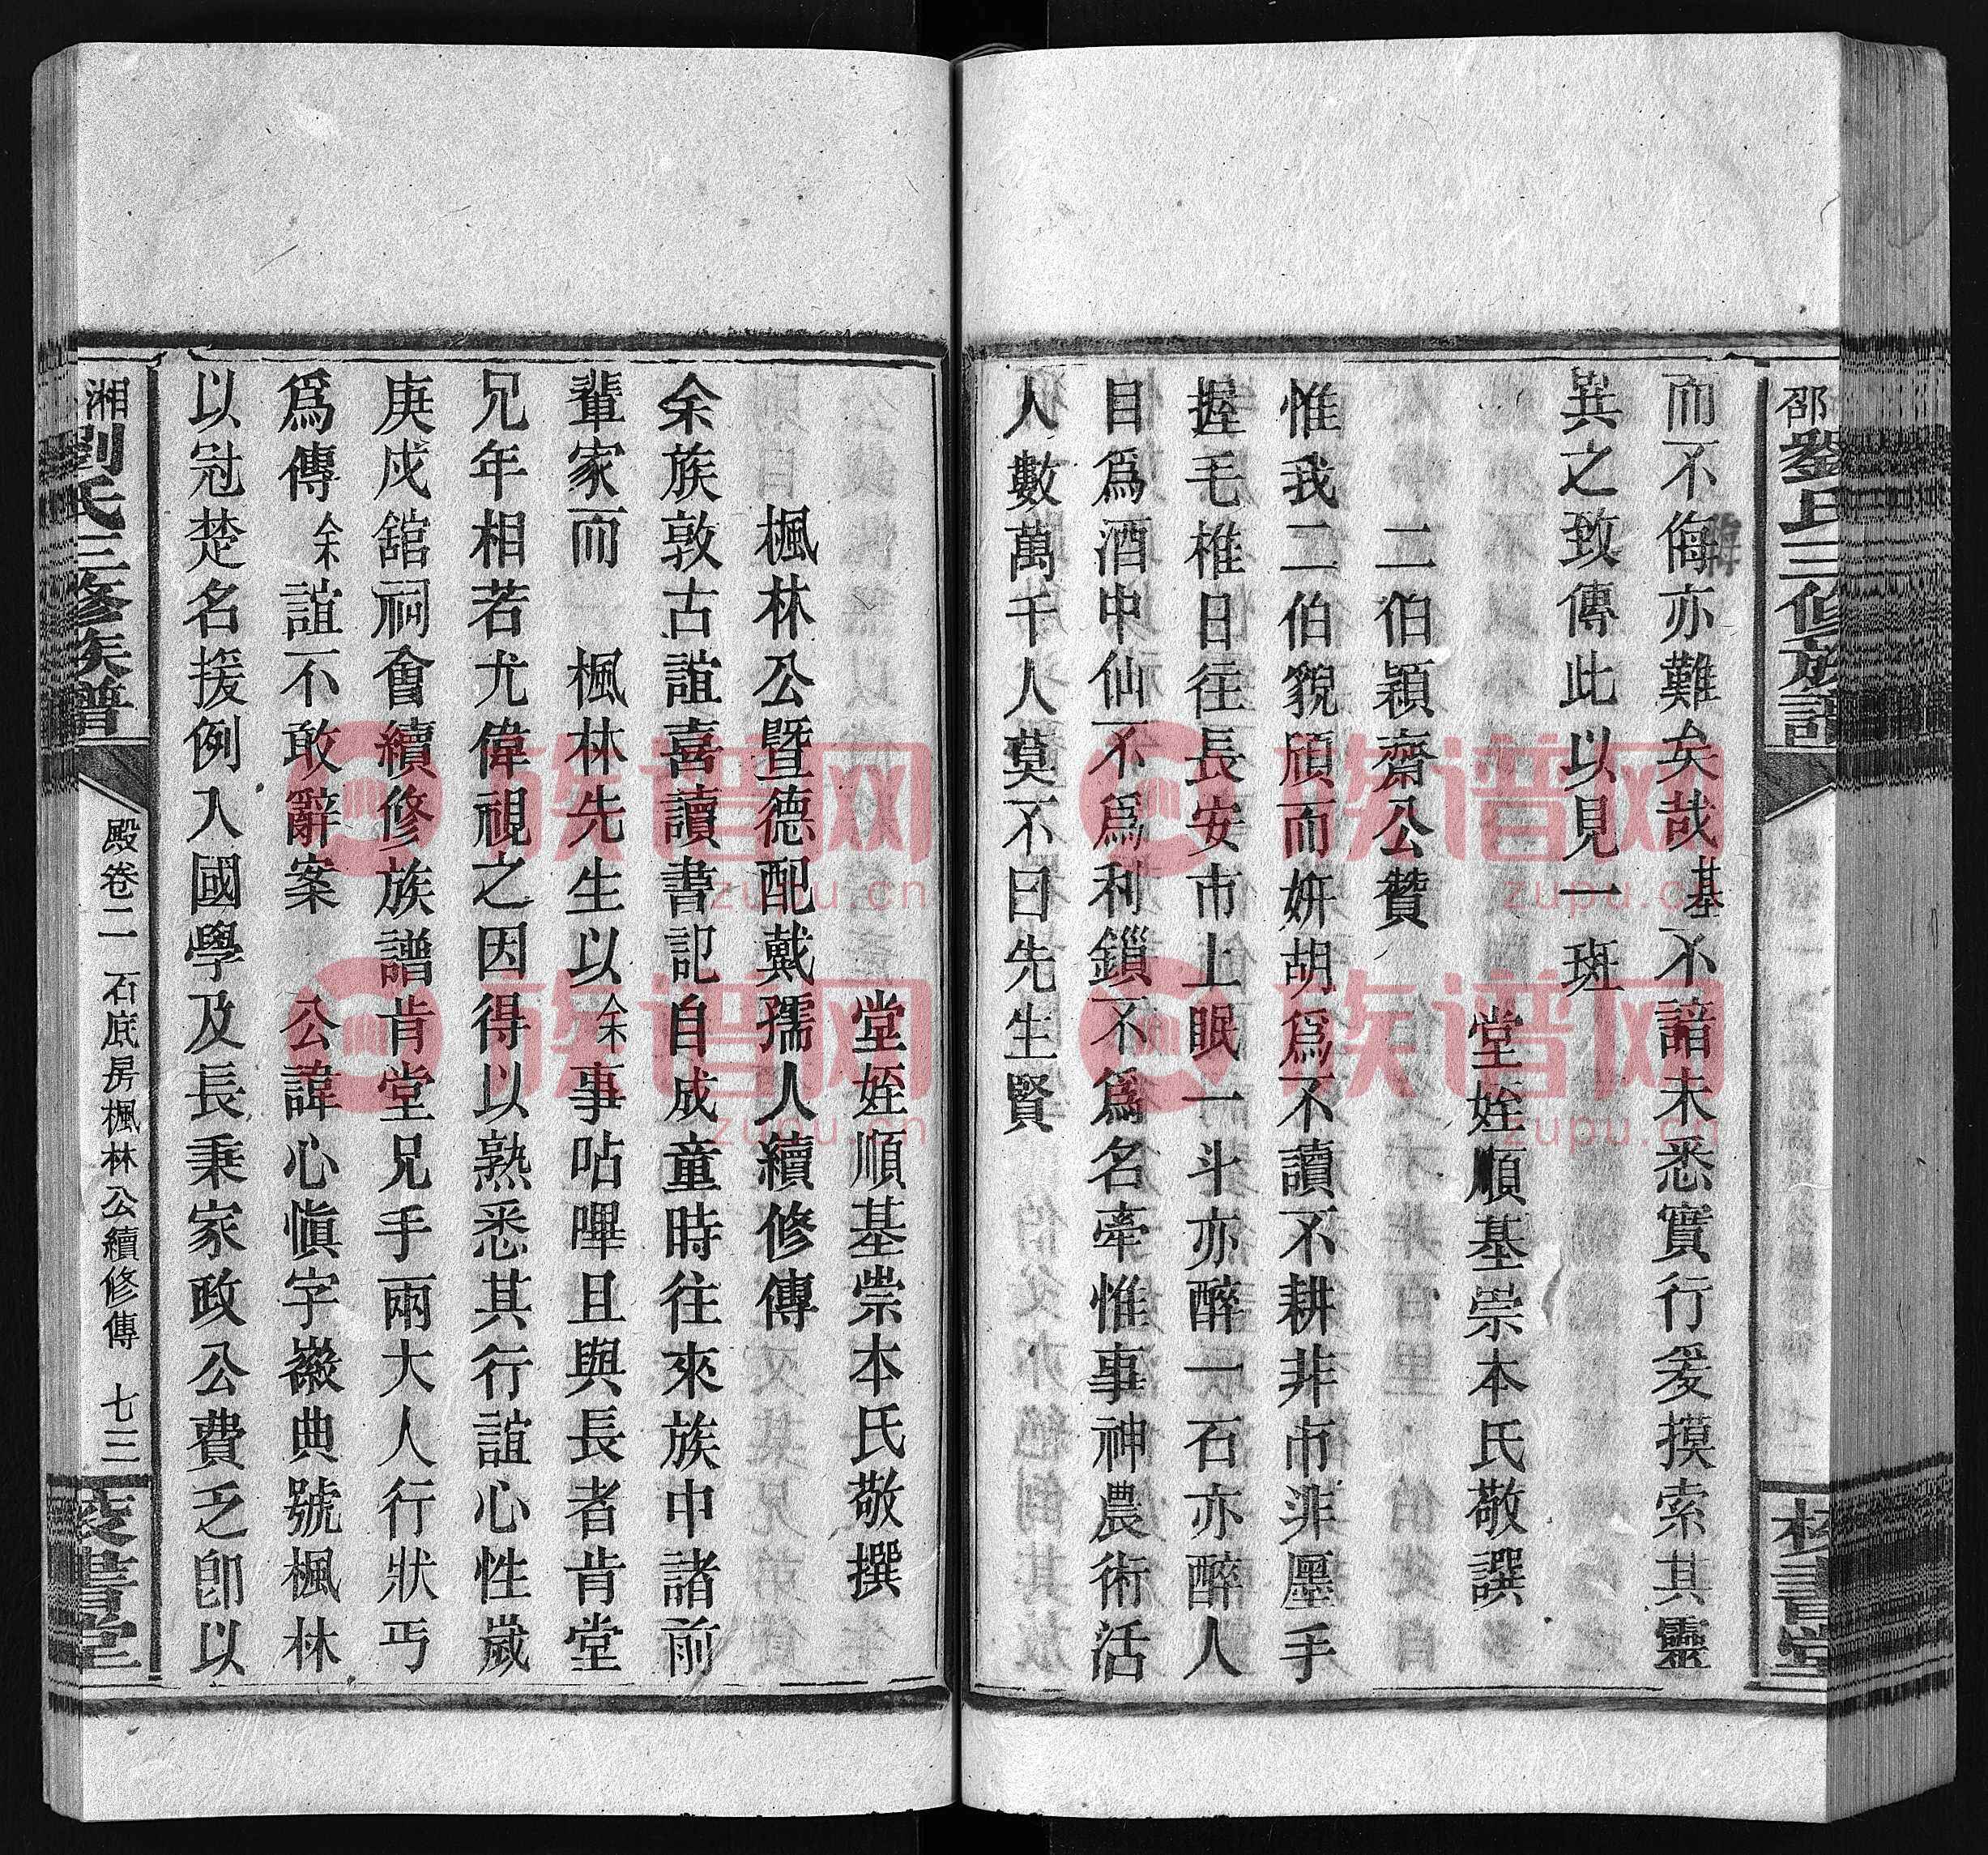 邵劉氏三修族譜
校書堂
而不侮亦難矣哉基不諳未悉實行爰摸索其靈
異之致傳此以見一斑
堂姪順基崇本氏敬譔
二伯穎齋公贊
惟我二伯貌頎而妍胡爲不讀不耕非市非廛手
握毛椎日往長安市上眠一斗亦醉一石亦醉人
目爲酒中仙不爲利鎖不爲名牽惟事神農術活
人數萬千人莫不曰先生賢
堂姪順基崇本氏敬撰
楓林公暨德配戴孺人續修傳
余族敦古誼喜讀書記自成童時往來族中諸前
輩家而 楓林先生以余事呫嗶且與長者肯堂
兄年相若尤偉視之因得以熟悉其行誼心性歲
庚戍舘祠會續修族譜肯堂兄手兩大人行狀丐
爲傳余誼不敢辭案 公諱心愼字徽典號楓林
以冠楚名援例入國學及長秉家政公費乏卽以
湘劉氏三修族譜
殿卷二 石底房楓林公續修傳 七三
校書堂
族谱网
zupu.cn
族谱网
zupu.cn
族谱网
zupu.cn
族谱网
zupu.cn